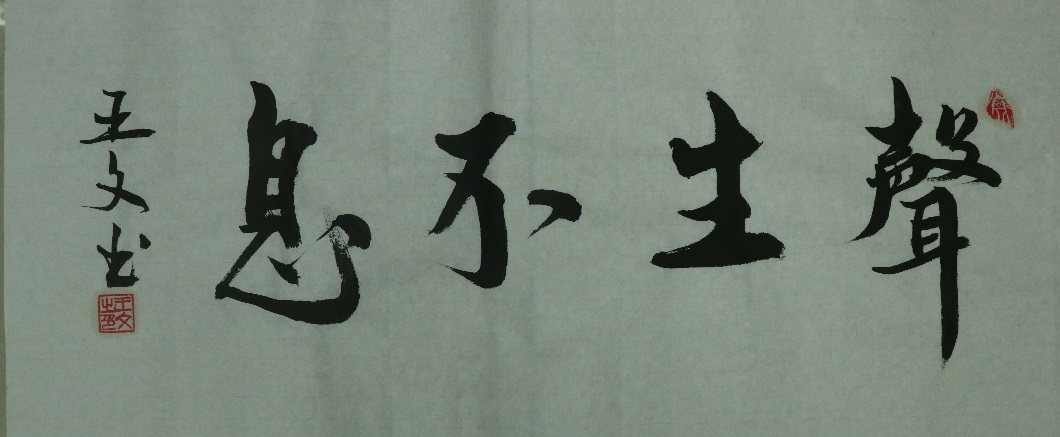 聲生不息
王文书